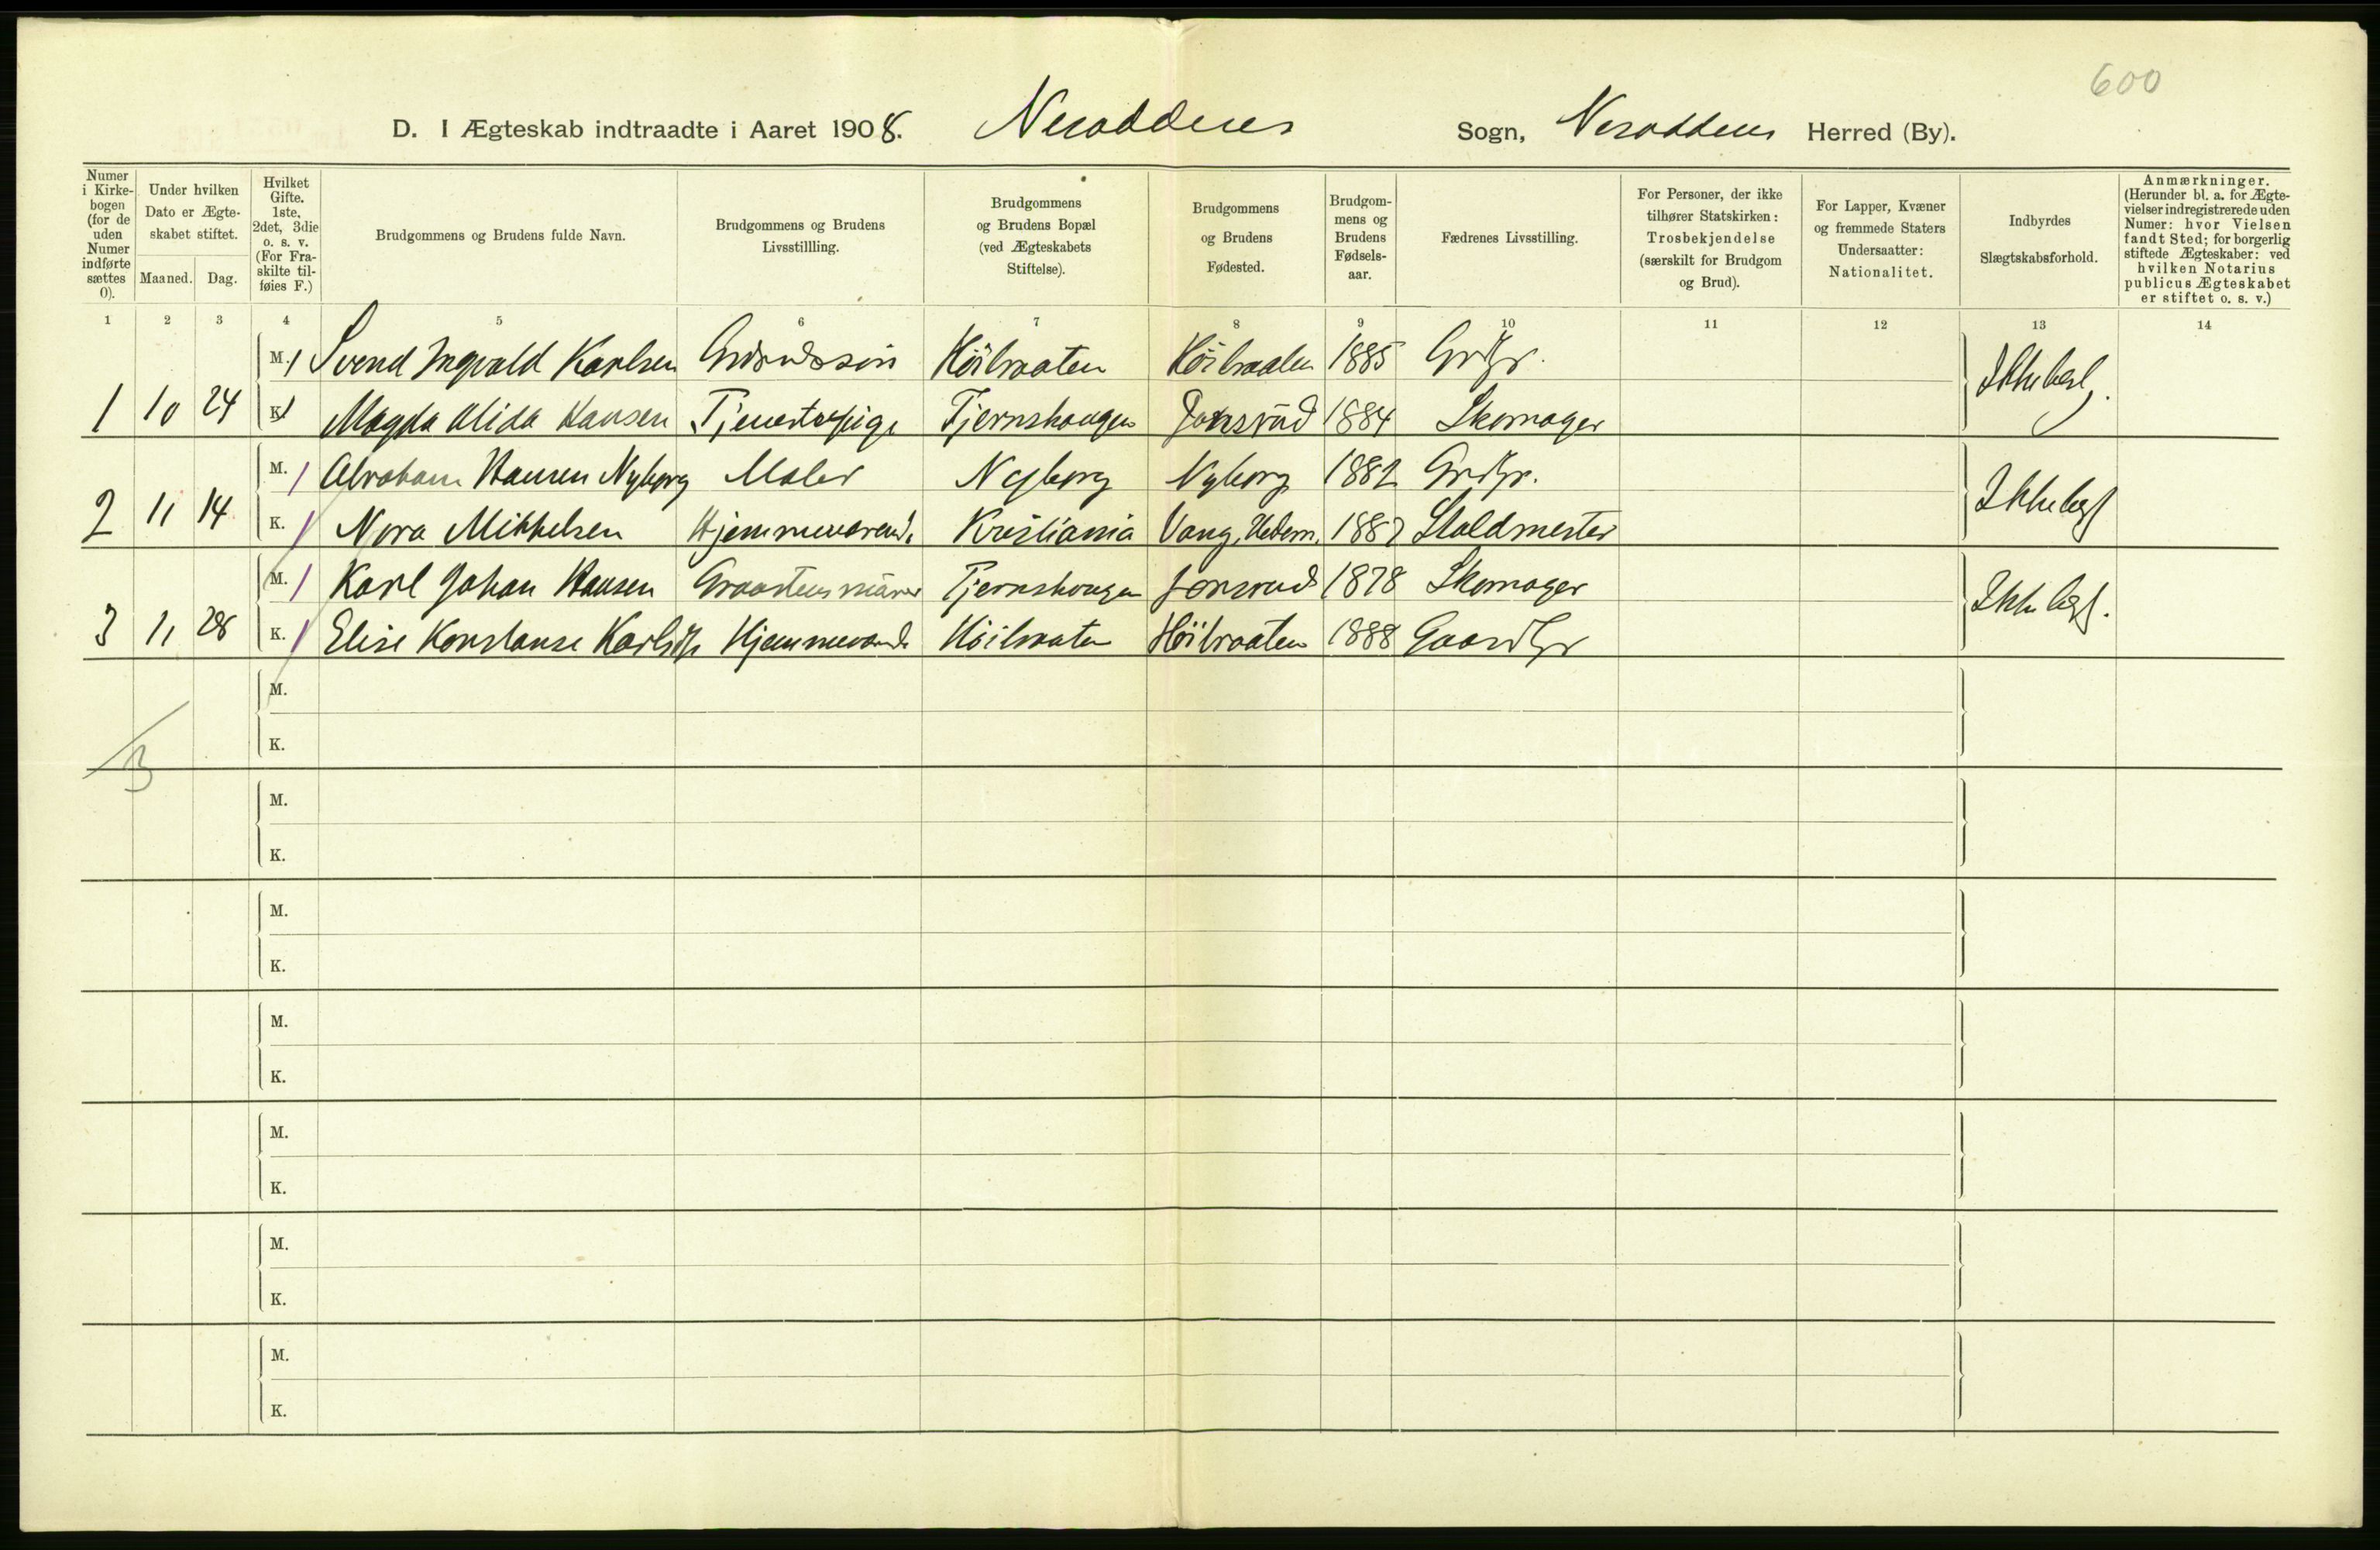 600
D. I Ægteskab indtraadte i Aaret 1908. Nesoddens Sogn, Nesoddens Herred (By).
Numer i Kirke-bogen (for de uden Numer indførte sættes 0).
Under hvilken Dato er Ægte-skabet stiftet.
Maaned. Dag.
Hvilket Gifte. 1ste, 2det, 3die o. s. v. (For Fra-skilte til-føies F.)
Brudgommens og Brudens fulde Navn.
Brudgommens og Brudens Livsstillling.
Brudgommens og Brudens Bopæl (ved Ægteskabets Stiftelse).
Brudgommens og Brudens Fødested.
Brudgom-mens og Brudens Fødsels-aar.
Fædrenes Livsstilling.
For Personer, der ikke tilhører Statskirken: Trosbekjendelse (særskilt for Brudgom og Brud).
For Lapper, Kvæner og fremmede Staters Undersaatter: Nationalitet.
Indbyrdes Slægtskabsforhold.
Anmærkninger. (Herunder bl. a. for Ægte-vielser indregistrerede uden Numer: hvor Vielsen fandt Sted; for borgerlig stiftede Ægteskaber: ved hvilken Notarius publicus Ægteskabet er stiftet o. s. v.)
1 2 3 4 5 6 7 8 9 10 11 12 13 14
M. 1 Svend Ingvald Karlsen Høilraaten Høilraaten 1885 Grdbr. Ikke besl.
1 10 24 K. 1 Magda Alida Hansen Tjenestepige Tjernshaugen 1884 Skomager
M. 1 Abraham Hansen Nyborg Maler Nyborg Nyborg 1882 Grdbr. Ikke besl
2 11 14 K. 1 Nora Mikkelsen Hjemmeværend. Kristiania Vang, Hedem. 1887 Staldmester
M. 1 Karl Johan Hansen Tjernshaugen 1878 Skomager Ikke besl.
3 11 28 K. 1 Elise Konstanse Hjemmeværende Høilraaten Høilraaten 1888 Gaardbr
M.
K.
3
M.
K.
M.
K.
M.
K.
M.
K.
M.
K.
M.
K.